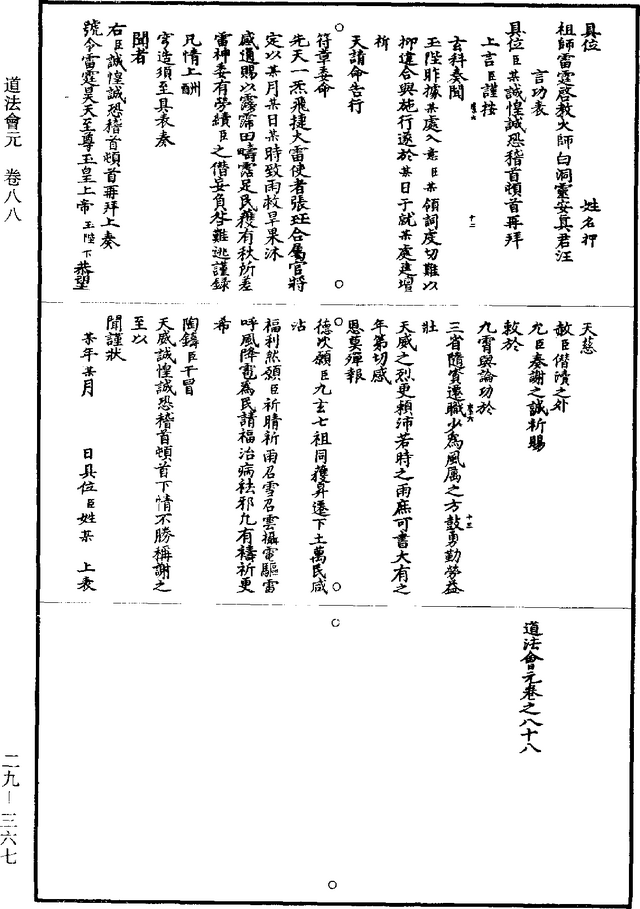 具位
祖師雷霆啓教火師白洞靈安真君汪
言功表　姓名押
具位臣某誠惶誠恐稽首頓首再拜
上言臣謹按
玄科奏聞
玉陛昨據某處入意臣某領詞虔切難以
抑違合與施行遂於某日于就某處建壇
祈
天請命告行
符章委命
先天一炁飛捷大雷使者張珏合屬官將
定以某月某日某時致雨救旱果沐
感通賜以霶霈田疇霑足民獲有秋所差
雷神委有勞績臣之僭妄負咎難逃謹錄
凡情上酬
穹造須至具表奏
聞者
右臣誠惶誠恐稽首頓首再拜上奏
號令雷霆昊天至尊玉皇上帝玉陛下恭望
天慈
赦臣僭瀆之外
允臣奏謝之誠祈賜
敕於
九霄與論功於
三省隨賞遷職少為風厲之方鼓勇勤勞益
壯
天威之烈更賴沛若時之雨庶可書大有之
年第切感
恩莫殫報
德次願臣九玄七祖同獲昇遷下土萬民咸
沾
福利然願臣祈晴祈雨召雪召雲攝電驅雷
呼風降雹為民請福治病祛邪凡有禱祈更
希
陶鑄臣干冒
天威誠惶誠恐稽首頓首下情不勝稱謝之
至以
聞謹狀
某年某月　日具位臣姓某　上表
道法會元卷之八十八
道法會元　卷八八
二九－三六七